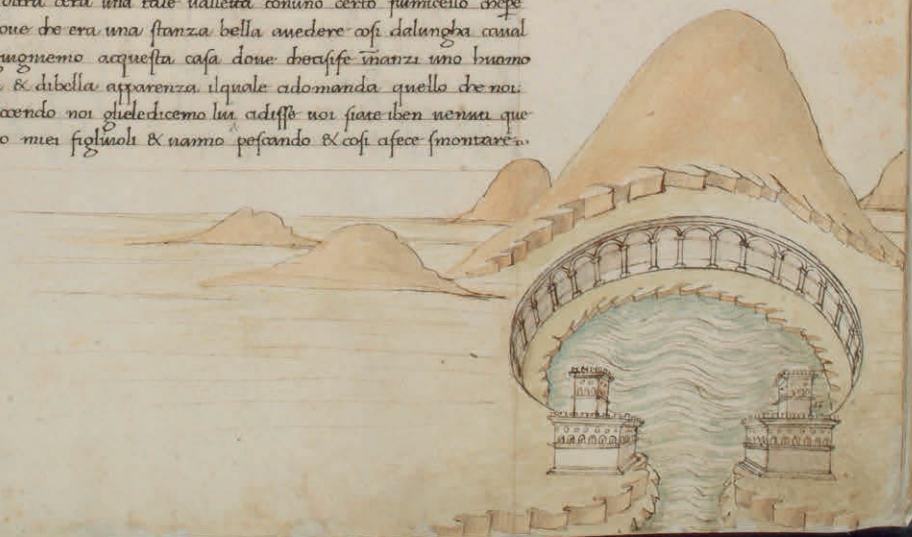 una tale valletta conuno certo fiumicello chepe
oue che era una stanza bella auedere cosi dalungha caual
uigniemo acquesta casa doue cheasise inanzi uno huomo
& dibella apparenza ilquale adomanda quello che noi.
cendo noi glieledicemo lui adisse uoi siate iben uenuti que
o miei figliuoli & uanno pescando & cosi afece smontare